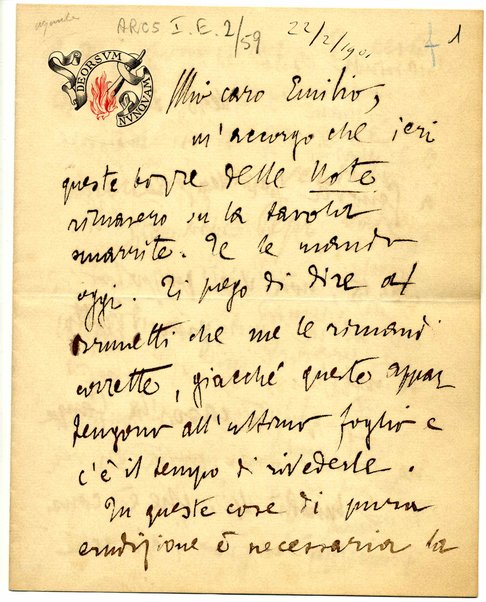 ARCS I. E. 2/59
22/2/1901
1
DEORSVM
NVNQVAM
Mio caro Emilio,
m'accorgo che ieri
queste bozze delle Note
rimasero su la tavola
smarrite. Te le mando
oggi. Ti prego di dire al
Brunetti che me le rimandi
corrette, giacché queste appar
tengono all'ultimo foglio e
c'è il tempo di rivederle.
In queste cose di pura
erudizione è necessaria la